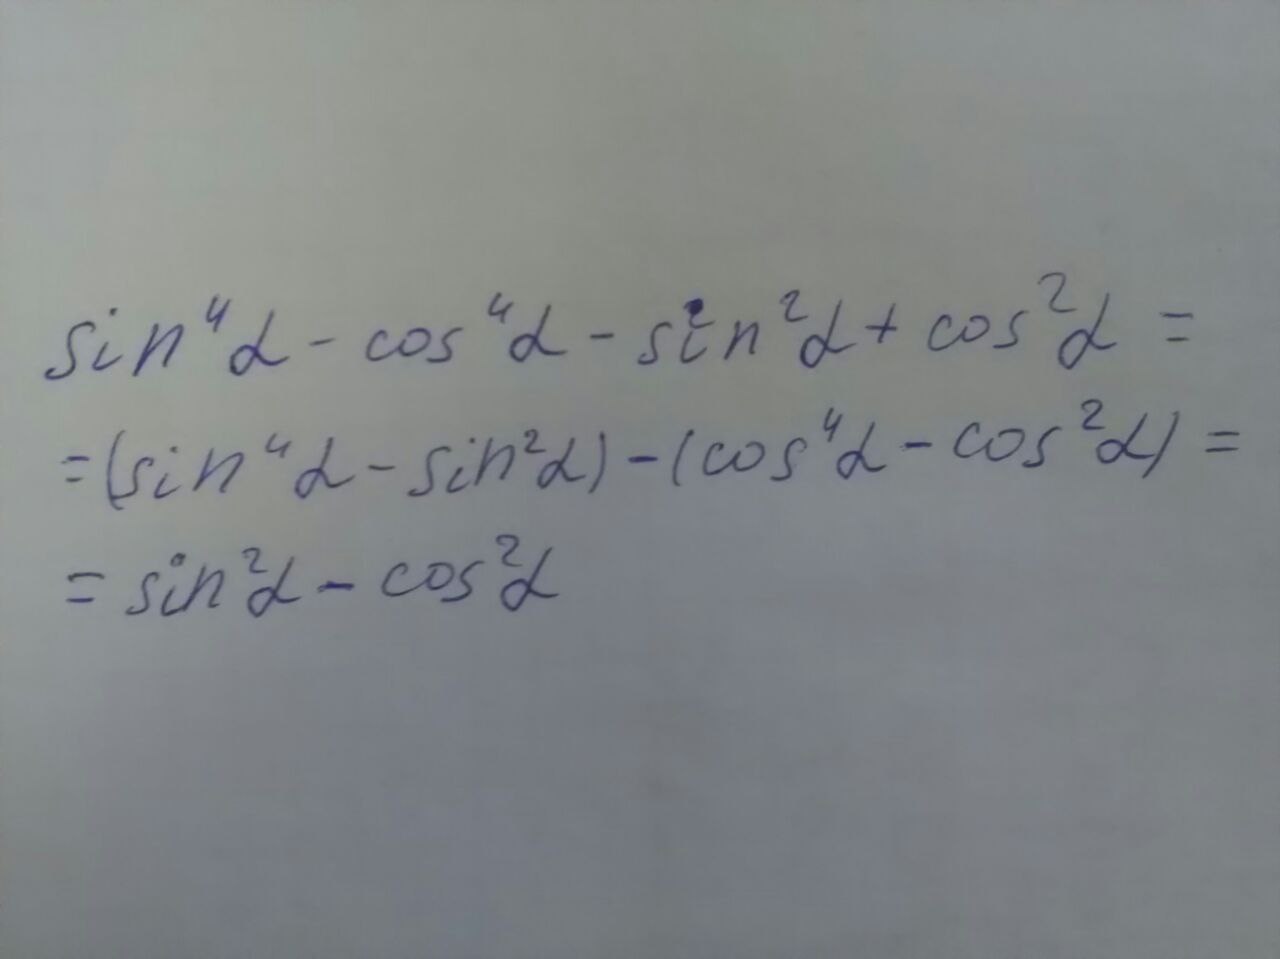 sin⁴α - cos⁴α - sin²α + cos²α =
= (sin⁴α - sin²α) - (cos⁴α - cos²α) =
= sin²α - cos²α